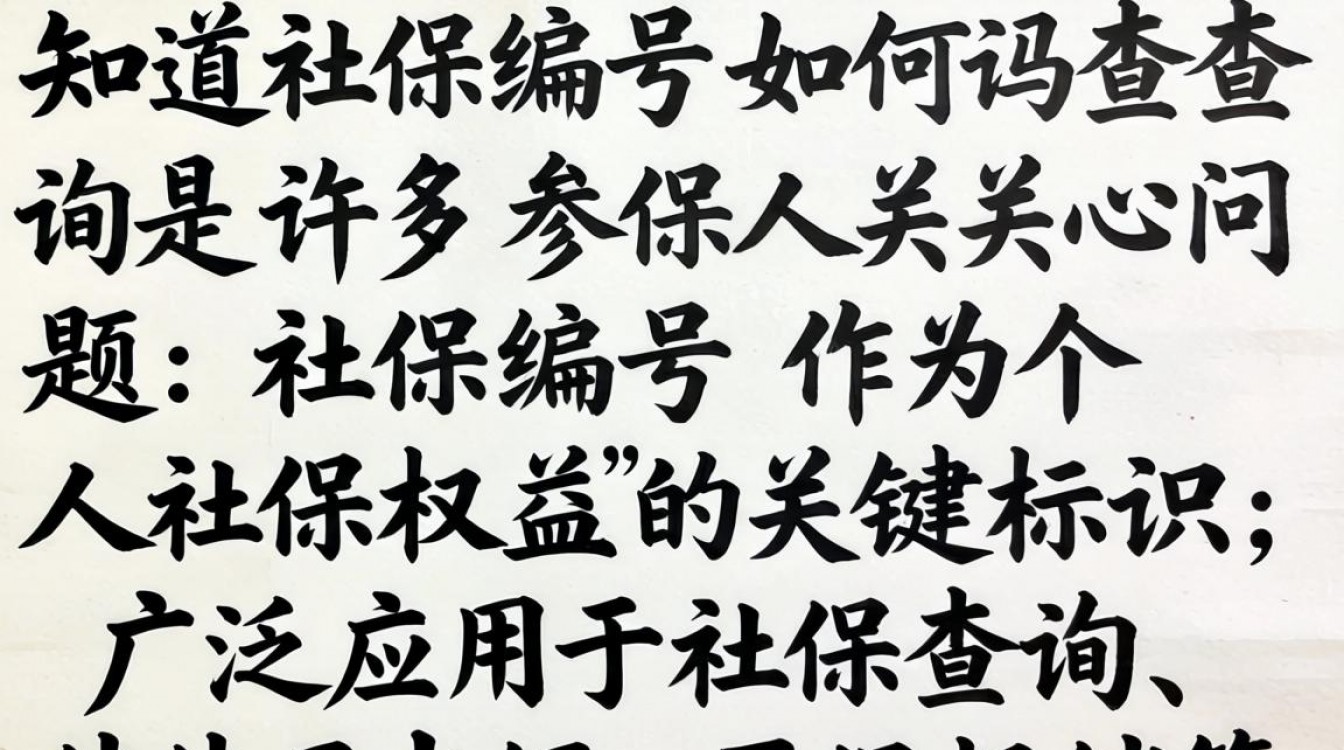 知道社保编号 如何查查
询是 许多 参保人关关心问
题：社保编号 作为个
人社保权益”的关键标识；
广泛应用于社保查询、